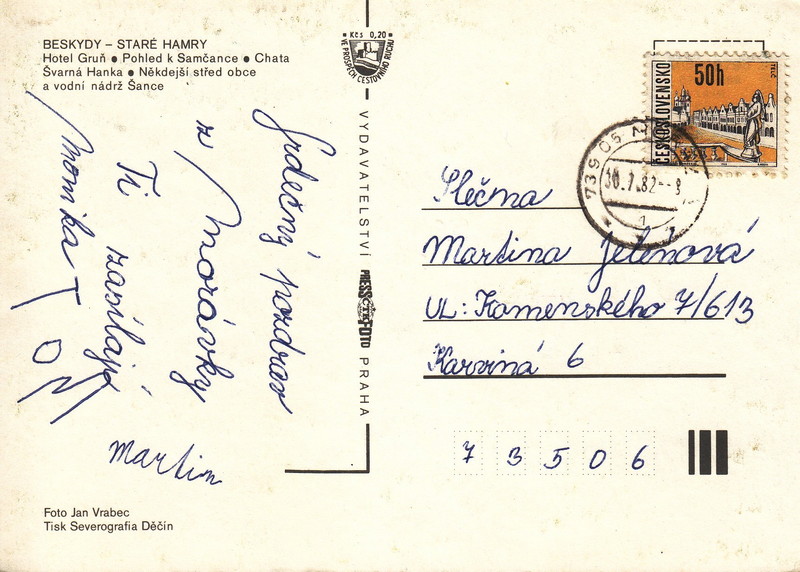 BESKYDY – STARÉ HAMRY
Hotel Gruň ● Pohled k Samčance ● Chata
Švarná Hanka ● Někdejší střed obce
a vodní nádrž Šance
Srdečný pozdrav
z Morávky
Ti zasílají
Monika T
ON
Martin
Foto Jan Vrabec
Tisk Severografia Děčín
Kčs 0,20
VE PROSPĚCH CESTOVNÍHO RUCHU
VYDAVATELSTVÍ PRESSFOTO PRAHA
ČTK
ČESKOSLOVENSKO
50h
TELČ
739 05
30.7.82--8
1
Slečna
Martina Jelenová
UL: Komenského 7/613
Karviná 6
73506